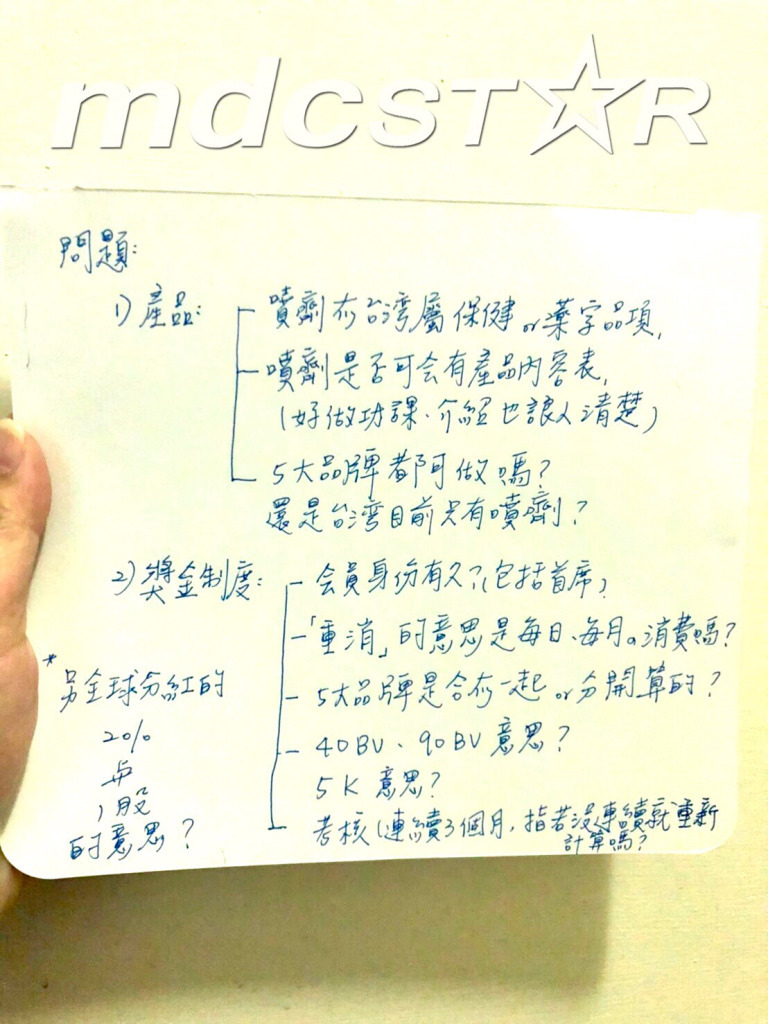 mdcST☆R
問題:
1) 產品: 噴劑在台湾屬保健 or 藥字品項,
噴劑是否可会有產品內容表,
(好做功課、介紹也讓人清楚)
5大品牌都可做嗎?
還是台湾目前只有噴劑?
2) 獎金制度: 会員身份有久?(包括首席)
「重消」的意思是每日、每月。消費嗎?
5大品牌是合在一起 or 分開算的?
40BV、90BV 意思?
5K 意思?
考核(連續3個月,指若沒連續就重新
計算嗎?
*
另全球分紅的
20%
与
1股
的意思?